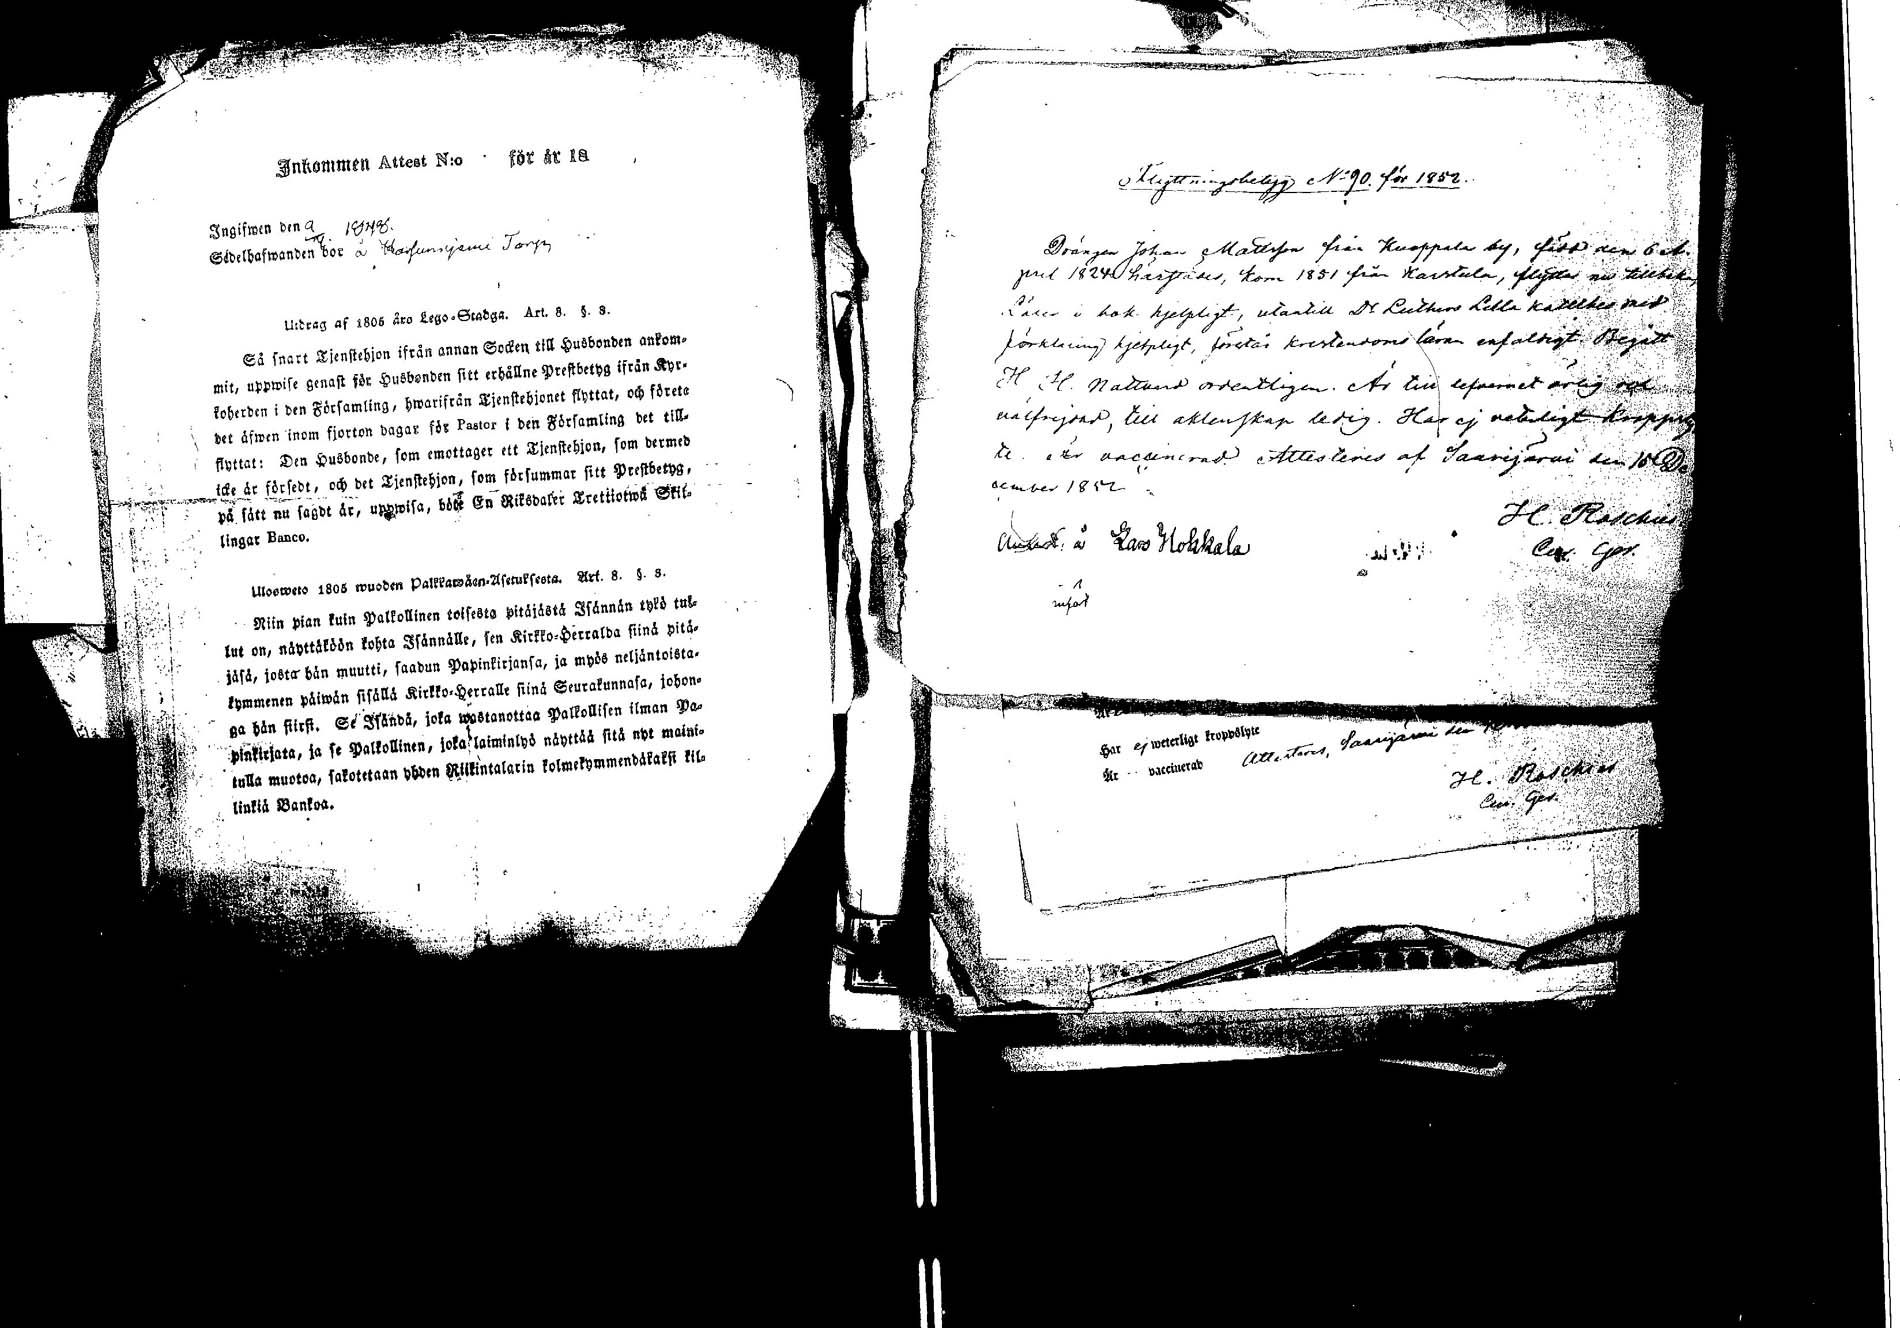 Inkommen Attest N:o för år 18
Ingifwen den
Sedelhafwanden bor å Torp
Utdrag af 1805 års Lego-Stadga. Art. 8. §. 8.
Så snart Tjenstehjon ifrån annan Socken till Husbonden ankom-
mit, uppwise genast för Husbonden sitt erhållne Prestbetyg ifrån Kyr-
koherden i den Församling, hwarifrån Tjenstehjonet flyttat, och förete
det äfwen inom fjorton dagar för Pastor i den Församling det till-
flyttat: Den Husbonde, som emottager ett Tjenstehjon, som dermed
icke är försedt, och det Tjenstehjon, som försummar sitt Prestbetyg,
på sätt nu sagdt är, uppwisa, böte En Riksdaler Trettiotwå Skil-
lingar Banco.
Uloswето 1805 wuoden Palkkawäen-Asetuksesta. Art. 8. §. 8.
Niin pian kuin Palkollinen toisesta pitäjästä Isännän tykö tul-
lut on, näyttäköön kohta Isännälle, sen Kirkko-Herralda siinä pitä-
jäsä, josta hän muutti, saadun Papinkirjansa, ja myös neljäntoista-
kymmenen päiwän sisällä Kirkko-Herralle siinä Seurakunnasa, johon-
ga hän siirsi. Se Isändä, joka wastanottaa Palkollisen ilman Pa-
pinkirjata, ja se Palkollinen, joka laiminlyö näyttää sitä nyt maini-
tulla muotoa, sakotetaan yhden Riikintalarin kolmekymmendäkaksi kil-
linkiä Bankoa.
Flyttningsbetyg No 90. för 1852.
Drängen Johan Mattsson från Kuoppala by, född den 6 A-
pril 1824 härstädes, kom 1851 från Karstula, flyttar nu tillbaka,
Läser i bok hjelpligt, utantill Dr Luthers Lilla Katekes med
förklaring hjelpligt, förstår kristendomsläran enfaldigt. Begått
H. H. Nattvard ordentligen. Är till lefvernet ärlig och
välfrejdad, till äktenskap ledig. Har ej veterligt kroppsly-
te. Är vaccinerad. Attesteras af Saarijärvi den 15 De
cember 1852
H. Roschier
å Lars Hokkala
infört
Har ej weterligt kroppslyte
Är vaccinerad
Attesteras, Saarijärvi den
H. Roschier